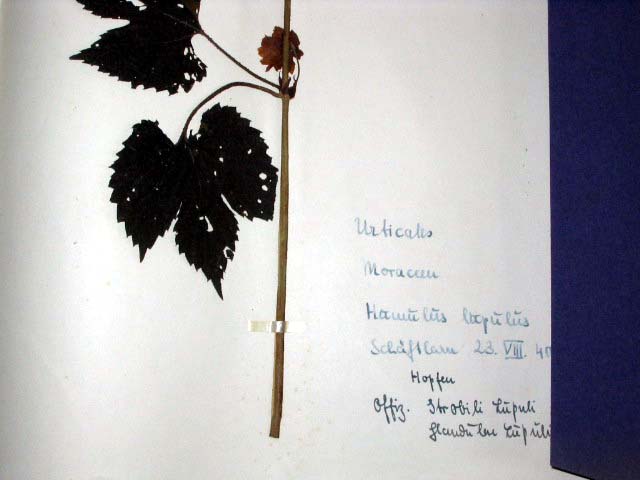 Urticales
Moraceen
Humulus lupulus
Schäftlarn 23. VIII. 40
Hopfen
Offiz. Strobili Lupuli
Glandulae Lupuli